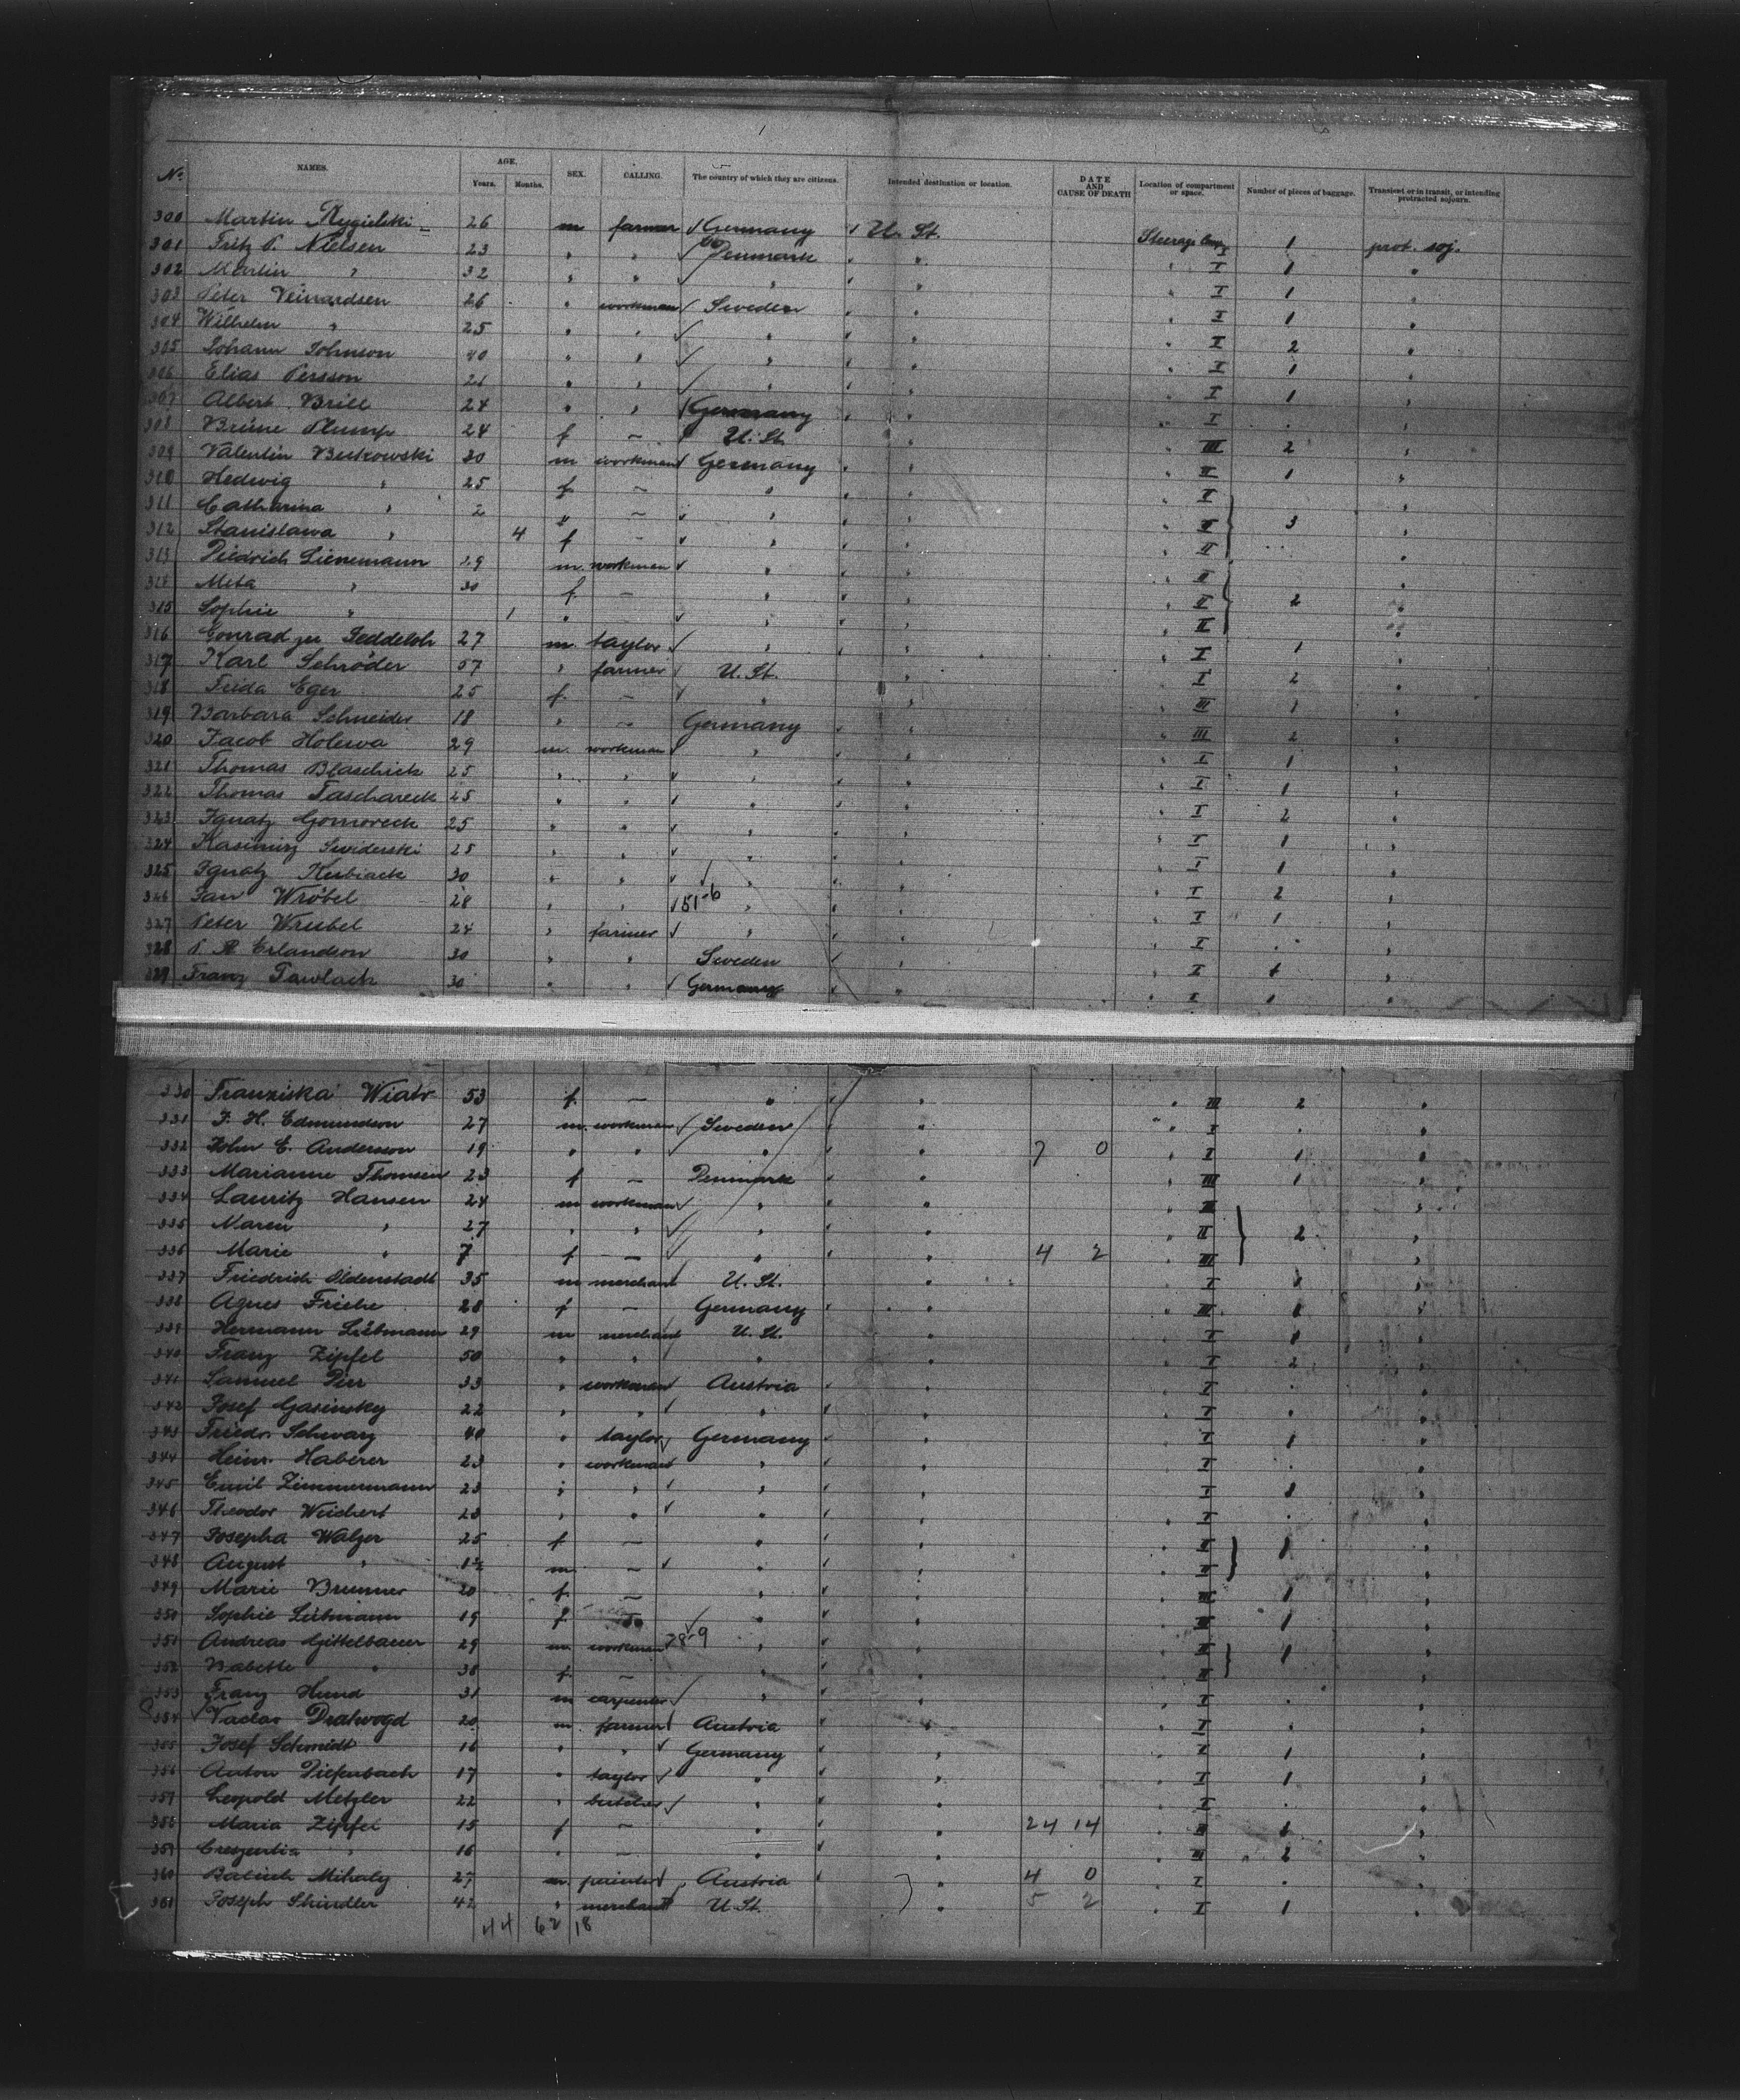 No. NAMES. AGE. Years. Months. SEX. CALLING. The country of which they are citizens. Intended destination or location. DATE AND CAUSE OF DEATH Location of compartment or space. Number of pieces of baggage. Transient or in transit, or intending protracted sojourn.
300 Martin Rygielski 26 m farmer Germany U. St. Steerage I 1 prot. soj.
301 Fritz P. Nielsen 23 " " Denmark " " I 1 "
302 Martin " 32 " " " " " I 1 "
303 Peter 26 " workman Sweden " " I 1 "
304 Wilhelm " 25 " " " " " I 2 "
305 Johann Johnson 40 " " " " " I 1 "
306 Elias Persson 21 " " " " " I 1 "
307 Albert Brill 24 " " Germany " " I . "
308 Plump 24 f – U. St. " " III 2 "
309 Valentin Butkowski 30 m workman Germany " " II 1 "
310 Hedwig " 25 f – " " " II "
311 Catharina " 2 " – " " " II 3 "
312 Stanislawa " 4 f – " " " II "
313 Diedrich Lienemann 29 m. workman " " " II "
314 Meta " 30 f – " " " II 2 "
315 Sophie " 1 " " " " II "
316 Conrad zu Jeddeloh 27 m. taylor " " " I 1 "
317 Karl Schröder 57 " farmer U. St. " " I 2 "
318 Frida Eger 25 f. – " " " III 1 "
319 Barbara Schneider 18 " – Germany " " III 2 "
320 Jacob Holewa 29 m. workman " " " I 1 "
321 Thomas Blaschick 25 " " " " " I 1 "
322 Thomas Taschareck 25 " " " " " I 2 "
323 Ignatz Gomoreck 25 " " " " " I 1 "
324 Kasimirz Swiderski 25 " " " " " I 1 "
325 Ignatz Kubiack 30 " " " " " I 2 "
326 Jan Wróbel 28 " " 51-6 " " " I 1 "
327 Peter Wrubel 24 " farmer " " " I . "
328 P. A. Erlandson 30 " " Sweden " " I 1 "
329 Franz Pawlack 30 " " Germany " " I 1 "
330 Franziska Wiatr 53 f. – " " " III 2 "
331 J. H. Edmundson 27 m. workman Sweden " " I . "
332 John E. Anderson 19 " " " " 7 0 " I 1 "
333 Marianne Thomsen 23 f – Denmark " " III 1 "
334 Lauritz Hansen 24 m workman " " " II "
335 Maren " 27 " " " " " II 2 "
336 Marie " 7 f – " " 4 2 " III "
337 Friedrich Oldenstadt 35 m merchant U. St. " " I 1 "
338 Agnes Friebe 28 f – Germany " " III 1 "
339 Hermann Liebmann 29 m merchant U. St. " " I 1 "
340 Franz Zipfel 50 " " " " " I 2 "
341 Samuel Pirr 33 " workman Austria " " I . "
342 Josef Gasinsky 22 " " " " " I . "
343 Friedr. Schwarz 40 " taylor Germany " " I 1 "
344 Heinr. Haberer 23 " workman " " " I . "
345 Emil Zimmermann 23 " " " " " I 1 "
346 Theodor Weichert 23 " " " " " I . "
347 Josepha Walzer 25 f – " " " II 1 "
348 August " 1½ m. – " " " II "
349 Marie Brunner 20 f – " " " III 1 "
350 Sophie Liebmann 19 f. " " " II 1 "
351 Andreas Gittelbauer 29 m. workman 28-9 " " " II 1 "
352 Babette " 38 f. – " " " II "
353 Franz Hund 31 m carpenter " " " I . "
354 Vaclav Dratwogd 20 m. farmer Austria " " I . "
355 Josef Schmidt 16 " " Germany " " I 1 "
356 Anton Piefenbach 17 " taylor " " " I 1 "
357 Leopold Metzler 22 " butcher " " " I . "
358 Maria Zipfel 15 f – " " 24 14 " III 1 "
359 Creszentia " 16 " – " " " III 2 "
360 Mihaly 27 m. painter Austria " 4 0 " I . "
361 Joseph Shindler 42 " merchant U. St. " 5 2 " I 1 "
44 62 18